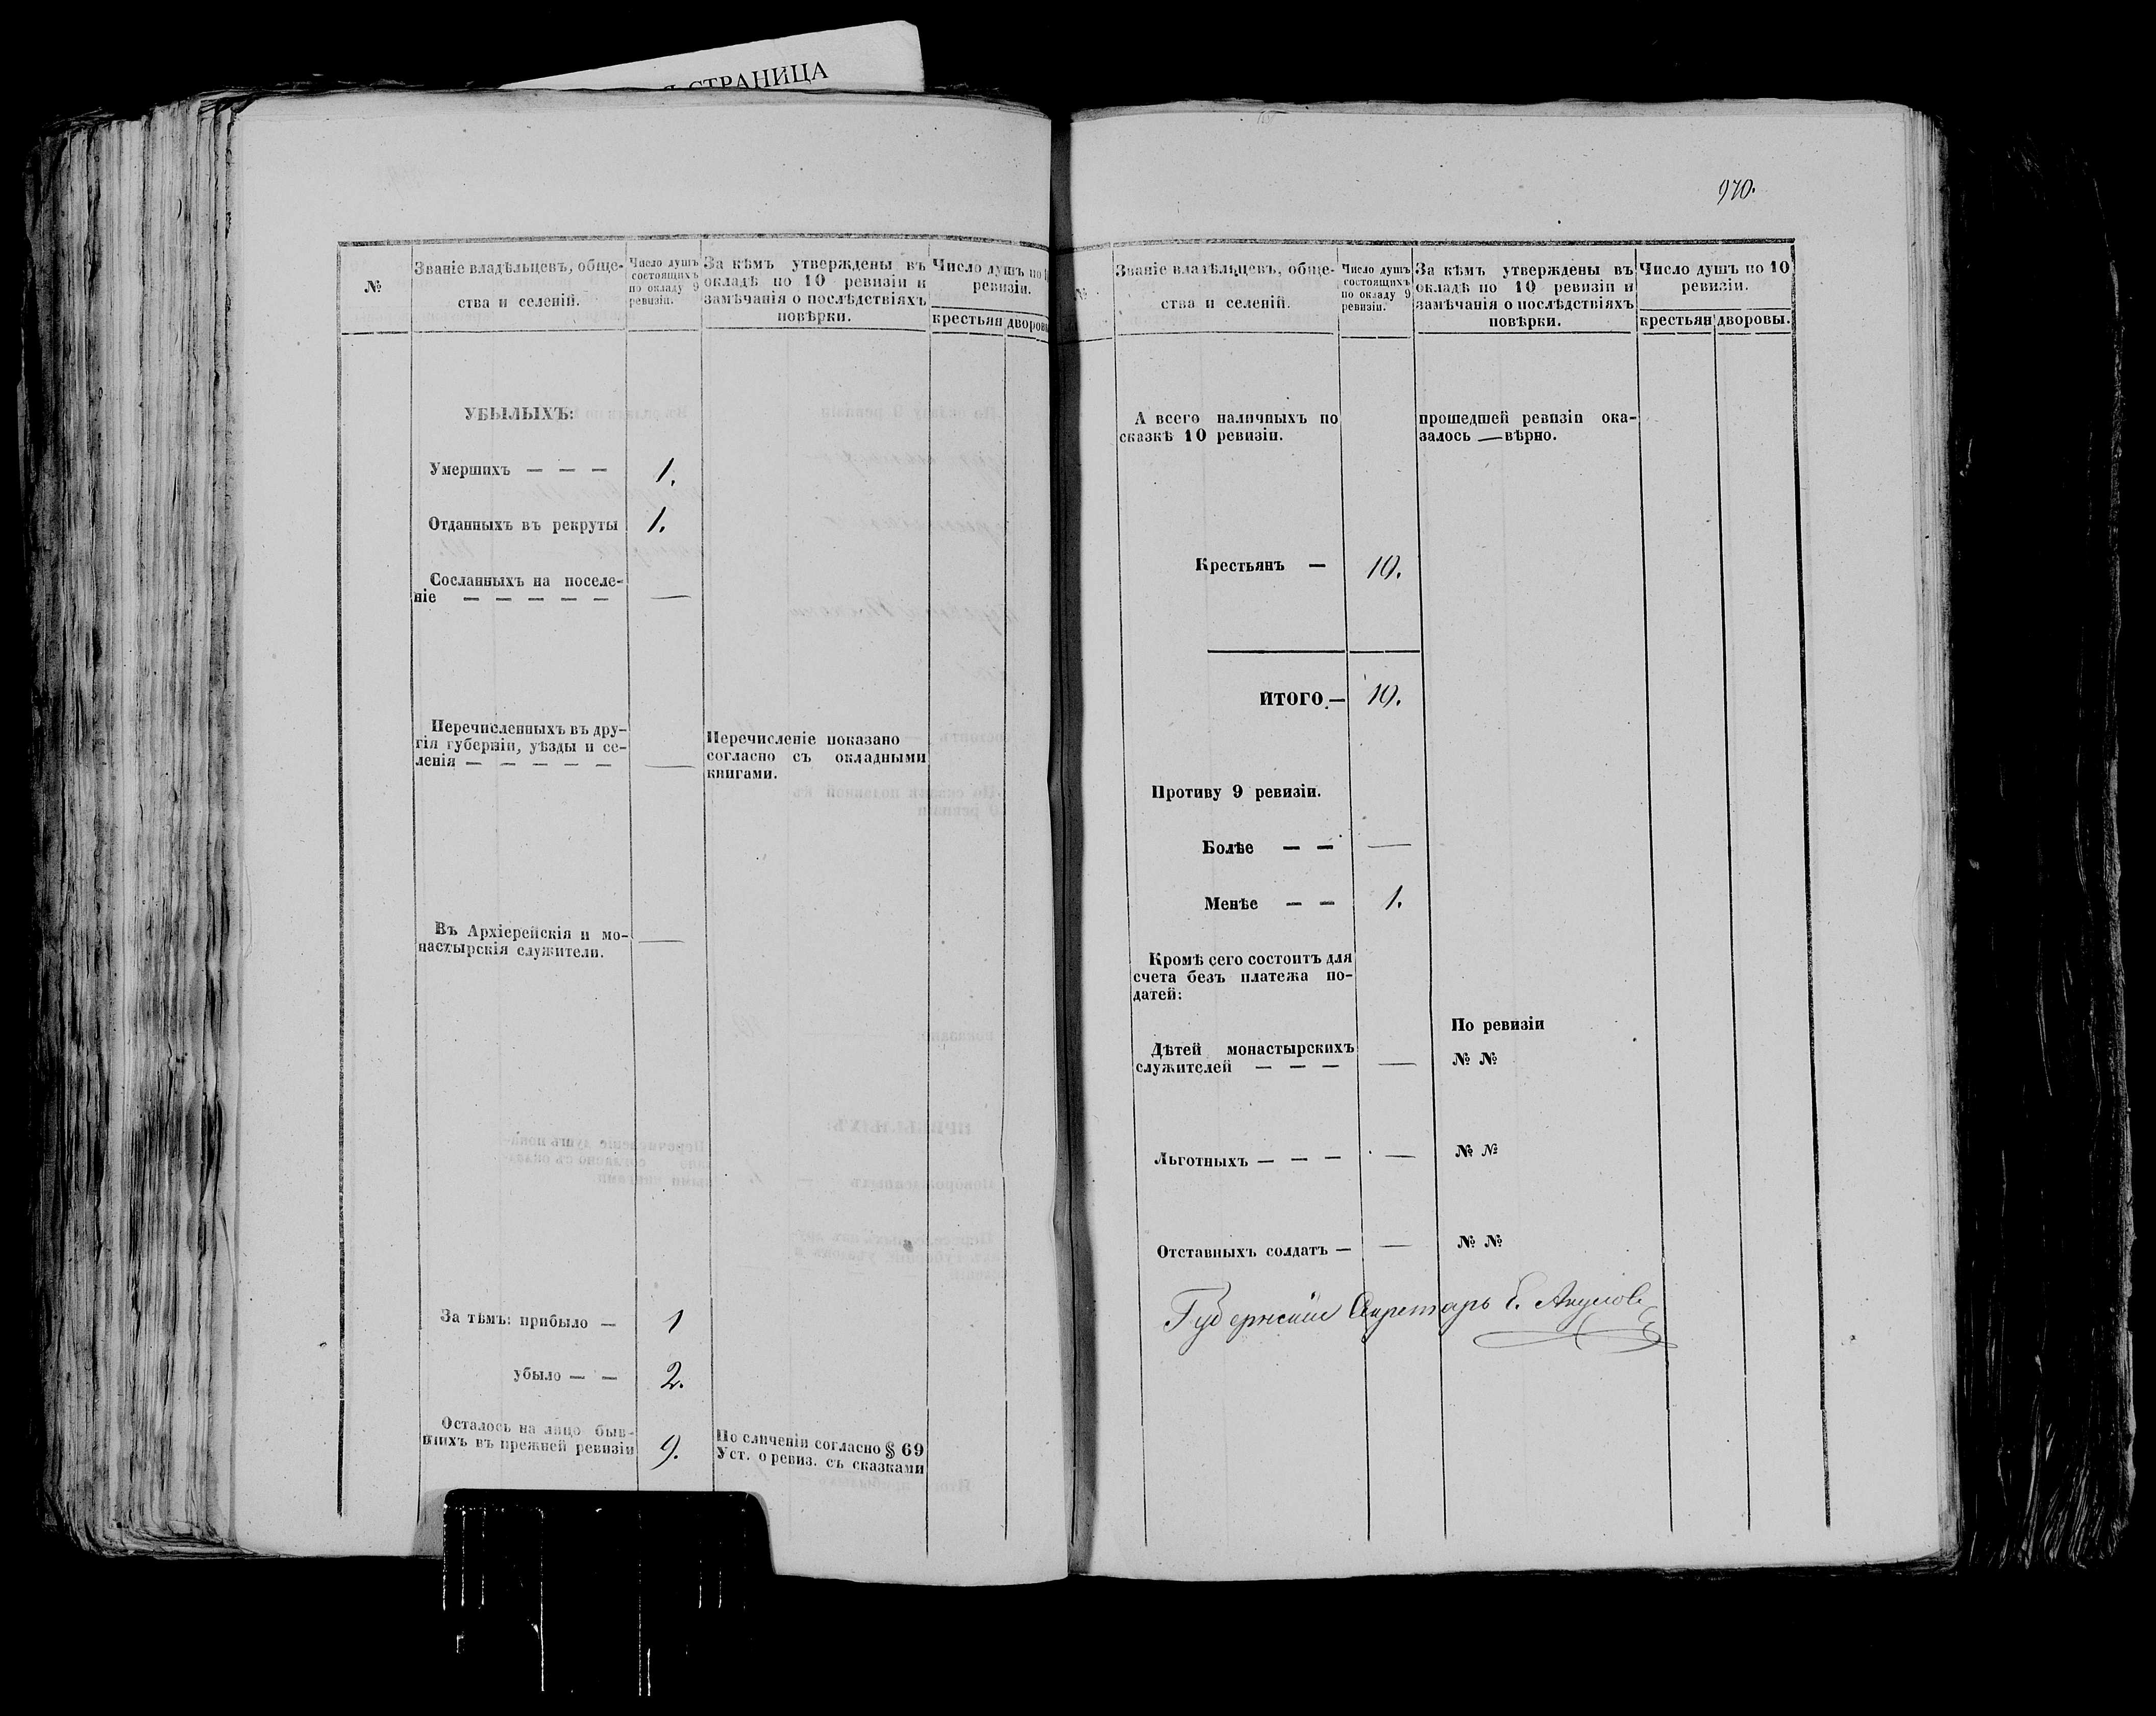 СТРАНИЦА
№
Званіе владѣльцевъ, обще-
ства и селеній.
Число душъ
состоящихъ
по окладу 9
ревизіи.
За кѣмъ утверждены въ
окладѣ по 10 ревизіи и
замѣчанія о послѣдствіяхъ
повѣрки.
Число душъ по
ревизіи.
крестьян
дворовы
УБЫЛЫХЪ:
Умершихъ — — — 1.
Отданныхъ въ рекруты 1.
Сосланныхъ на поселе-
ніе — — — — — —
Перечисленныхъ въ дру-
гія губерніи, уѣзды и се-
ленія — — — — — —
Перечисленіе показано
согласно съ окладными
книгами.
Въ Архіерейскія и мо- —
настырскія служители.
За тѣмъ: прибыло — 1
убыло — — 2.
Осталось на лицо быв-
шихъ въ прежней ревизіи 9.
По сличеніи согласно § 69
Уст. о ревиз. съ сказками
970.
Званіе владѣльцевъ, обще-
ства и селеній.
Число душъ
состоящихъ
по окладу 9
ревизіи.
За кѣмъ утверждены въ
окладѣ по 10 ревизіи и
замѣчанія о послѣдствіяхъ
повѣрки.
Число душъ по 10
ревизіи.
крестьян
дворовы.
А всего наличныхъ по
сказкѣ 10 ревизіи.
прошедшей ревизіи ока-
залось — вѣрно.
Крестьянъ — 10.
ИТОГО — 10.
Противу 9 ревизіи.
Болѣе — — —
Менѣе — — 1.
Кромѣ сего состоитъ для
счета безъ платежа по-
датей:
По ревизіи
Дѣтей монастырскихъ
служителей — — — —
№ №
Льготныхъ — — — — № №
Отставныхъ солдатъ — — № №
Губернскій Секретарь Е.